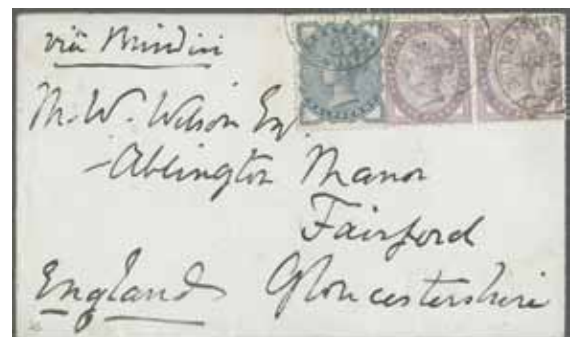 via Brindisi
M. W. Wilson Esq.
Ablington Manor
Fairford
England Gloucestershire